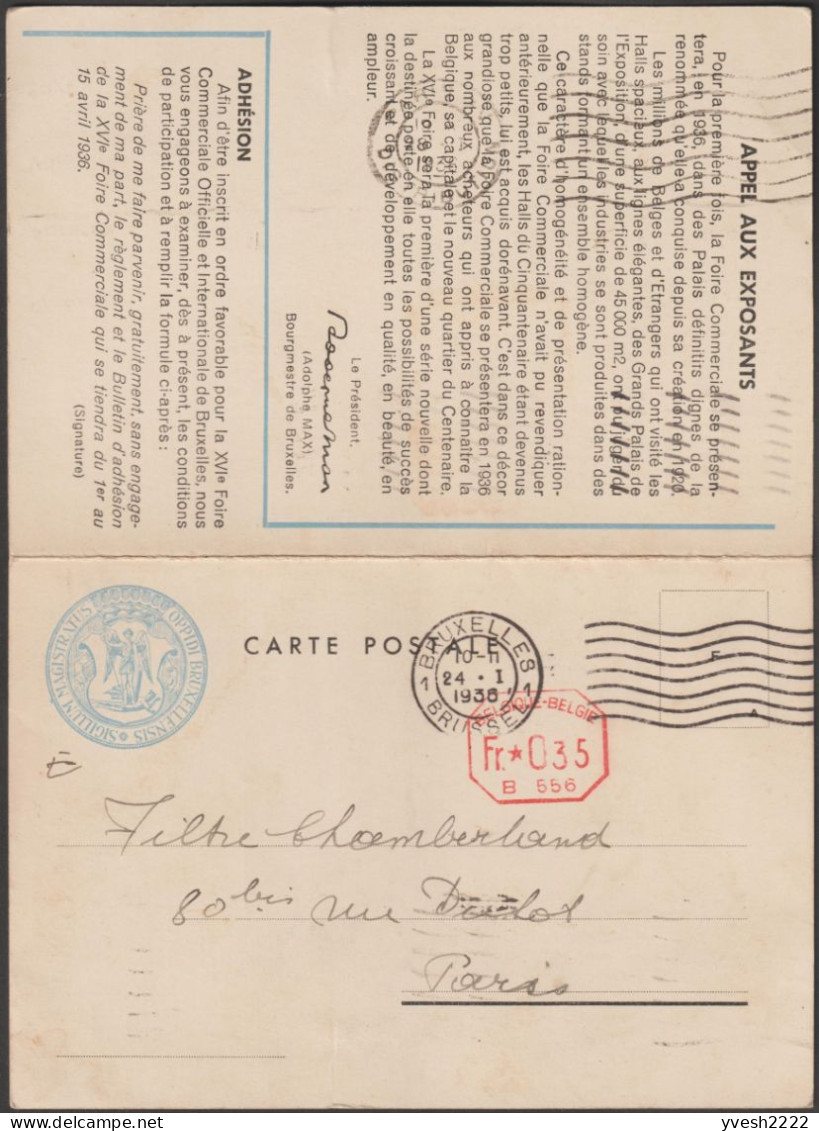 APPEL AUX EXPOSANTS
Pour la première fois, la Foire Commerciale se présen-
tera, en 1936, dans des Palais définitifs dignes de la
renommée qu'elle a conquise depuis sa création en 1920.
Les millions de Belges et d'Etrangers qui ont visité les
Halls spacieux, aux lignes élégantes, des Grands Palais de
l'Exposition, d'une superficie de 45 000 m2, ont pu juger du
soin avec lequel les industries se sont produites dans des
stands formant un ensemble homogène.
Ce caractère d'homogénéité et de présentation ration-
nelle que la Foire Commerciale n'avait pu revendiquer
antérieurement, les Halls du Cinquantenaire étant devenus
trop petits, lui est acquis dorénavant. C'est dans ce décor
grandiose que la Foire Commerciale se présentera en 1936
aux nombreux acheteurs qui ont appris à connaître la
Belgique, sa capitale et le nouveau quartier du Centenaire.
La XVIe Foire sera la première d'une série nouvelle dont
la destinée porte en elle toutes les possibilités de succès
croissant et de développement en qualité, en beauté, en
ampleur.
Le Président,
(Adolphe MAX)
Bourgmestre de Bruxelles.
ADHÉSION
Afin d'être inscrit en ordre favorable pour la XVIe Foire
Commerciale Officielle et Internationale de Bruxelles, nous
vous engageons à examiner, dès à présent, les conditions
de participation et à remplir la formule ci-après :
Prière de me faire parvenir, gratuitement, sans engage-
ment de ma part, le règlement et le Bulletin d'adhésion
de la XVIe Foire Commerciale qui se tiendra du 1er au
15 avril 1936.
(Signature)
SIGILLUM MAGISTRATUS OPPIDI BRUXELLENSIS
CARTE POSTALE
1 BRUXELLES 1
10-11
24 · I
1936
BRUSSEL
BELGIQUE-BELGIE
Fr.★035
B 556
Filtre Chamberland
80 bis rue Dutot
Paris
yvesh2222